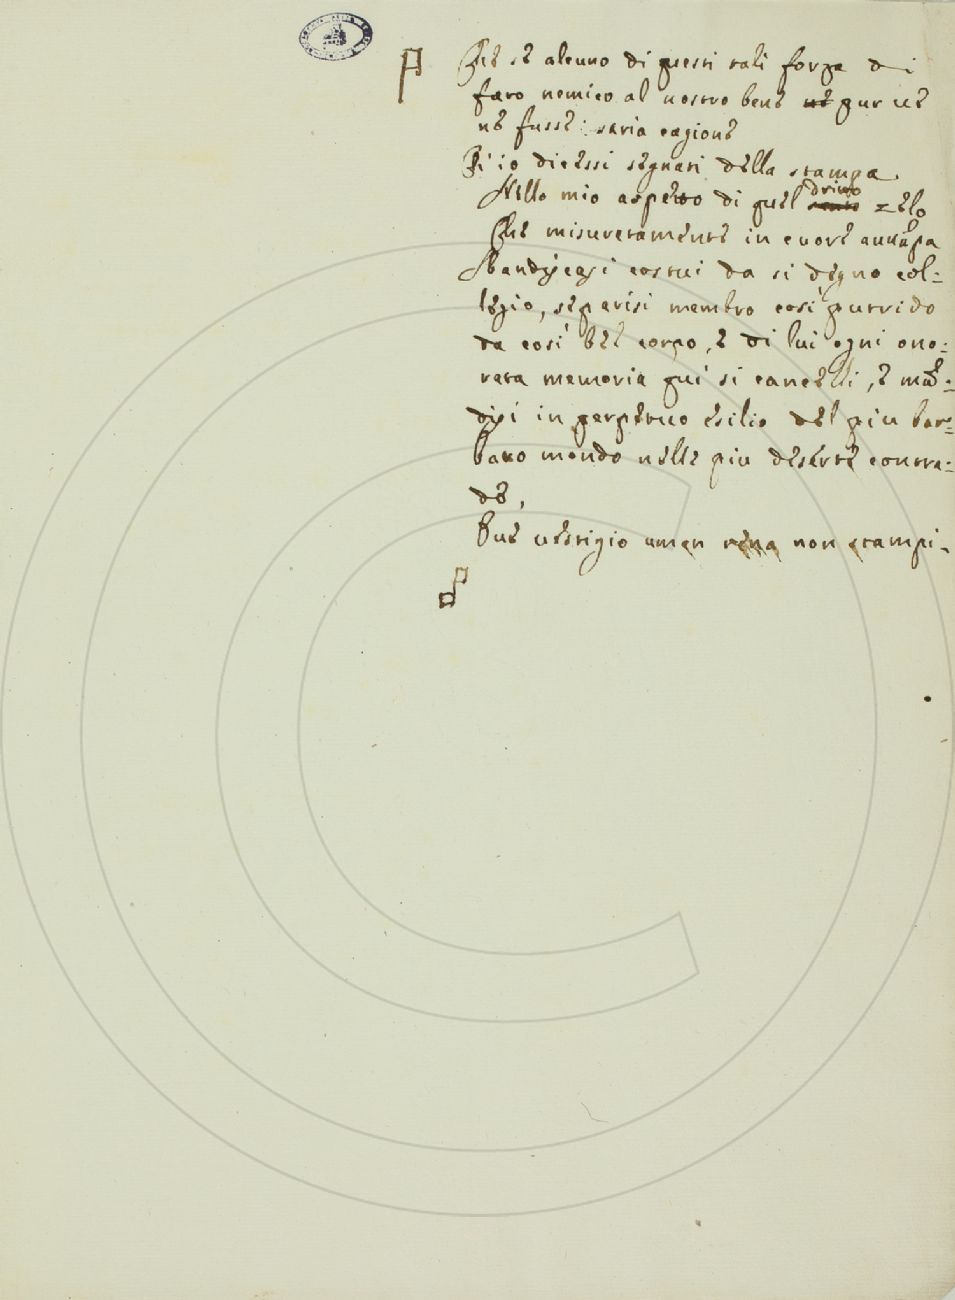 Che se alcuno di questi tali forza di
faro nemico al nostro bene ne pur ue
ne fusse: saria cagione
Di io dicessi segnati della stampa
Nello mio aspetto di quel drino zelo
Che misuratamente in cuore auuāpa
Bandiscasi costui da si degno col=
legio, separisi membro così putrido
da così bel corpo, e di lui ogni ono=
rata memoria qui si cancelli, e mā=
disi in perpetuo esilio del piu bar=
baro mondo nelle piu deserte contra=
de,
Sue uestigio umen rena non stampi.